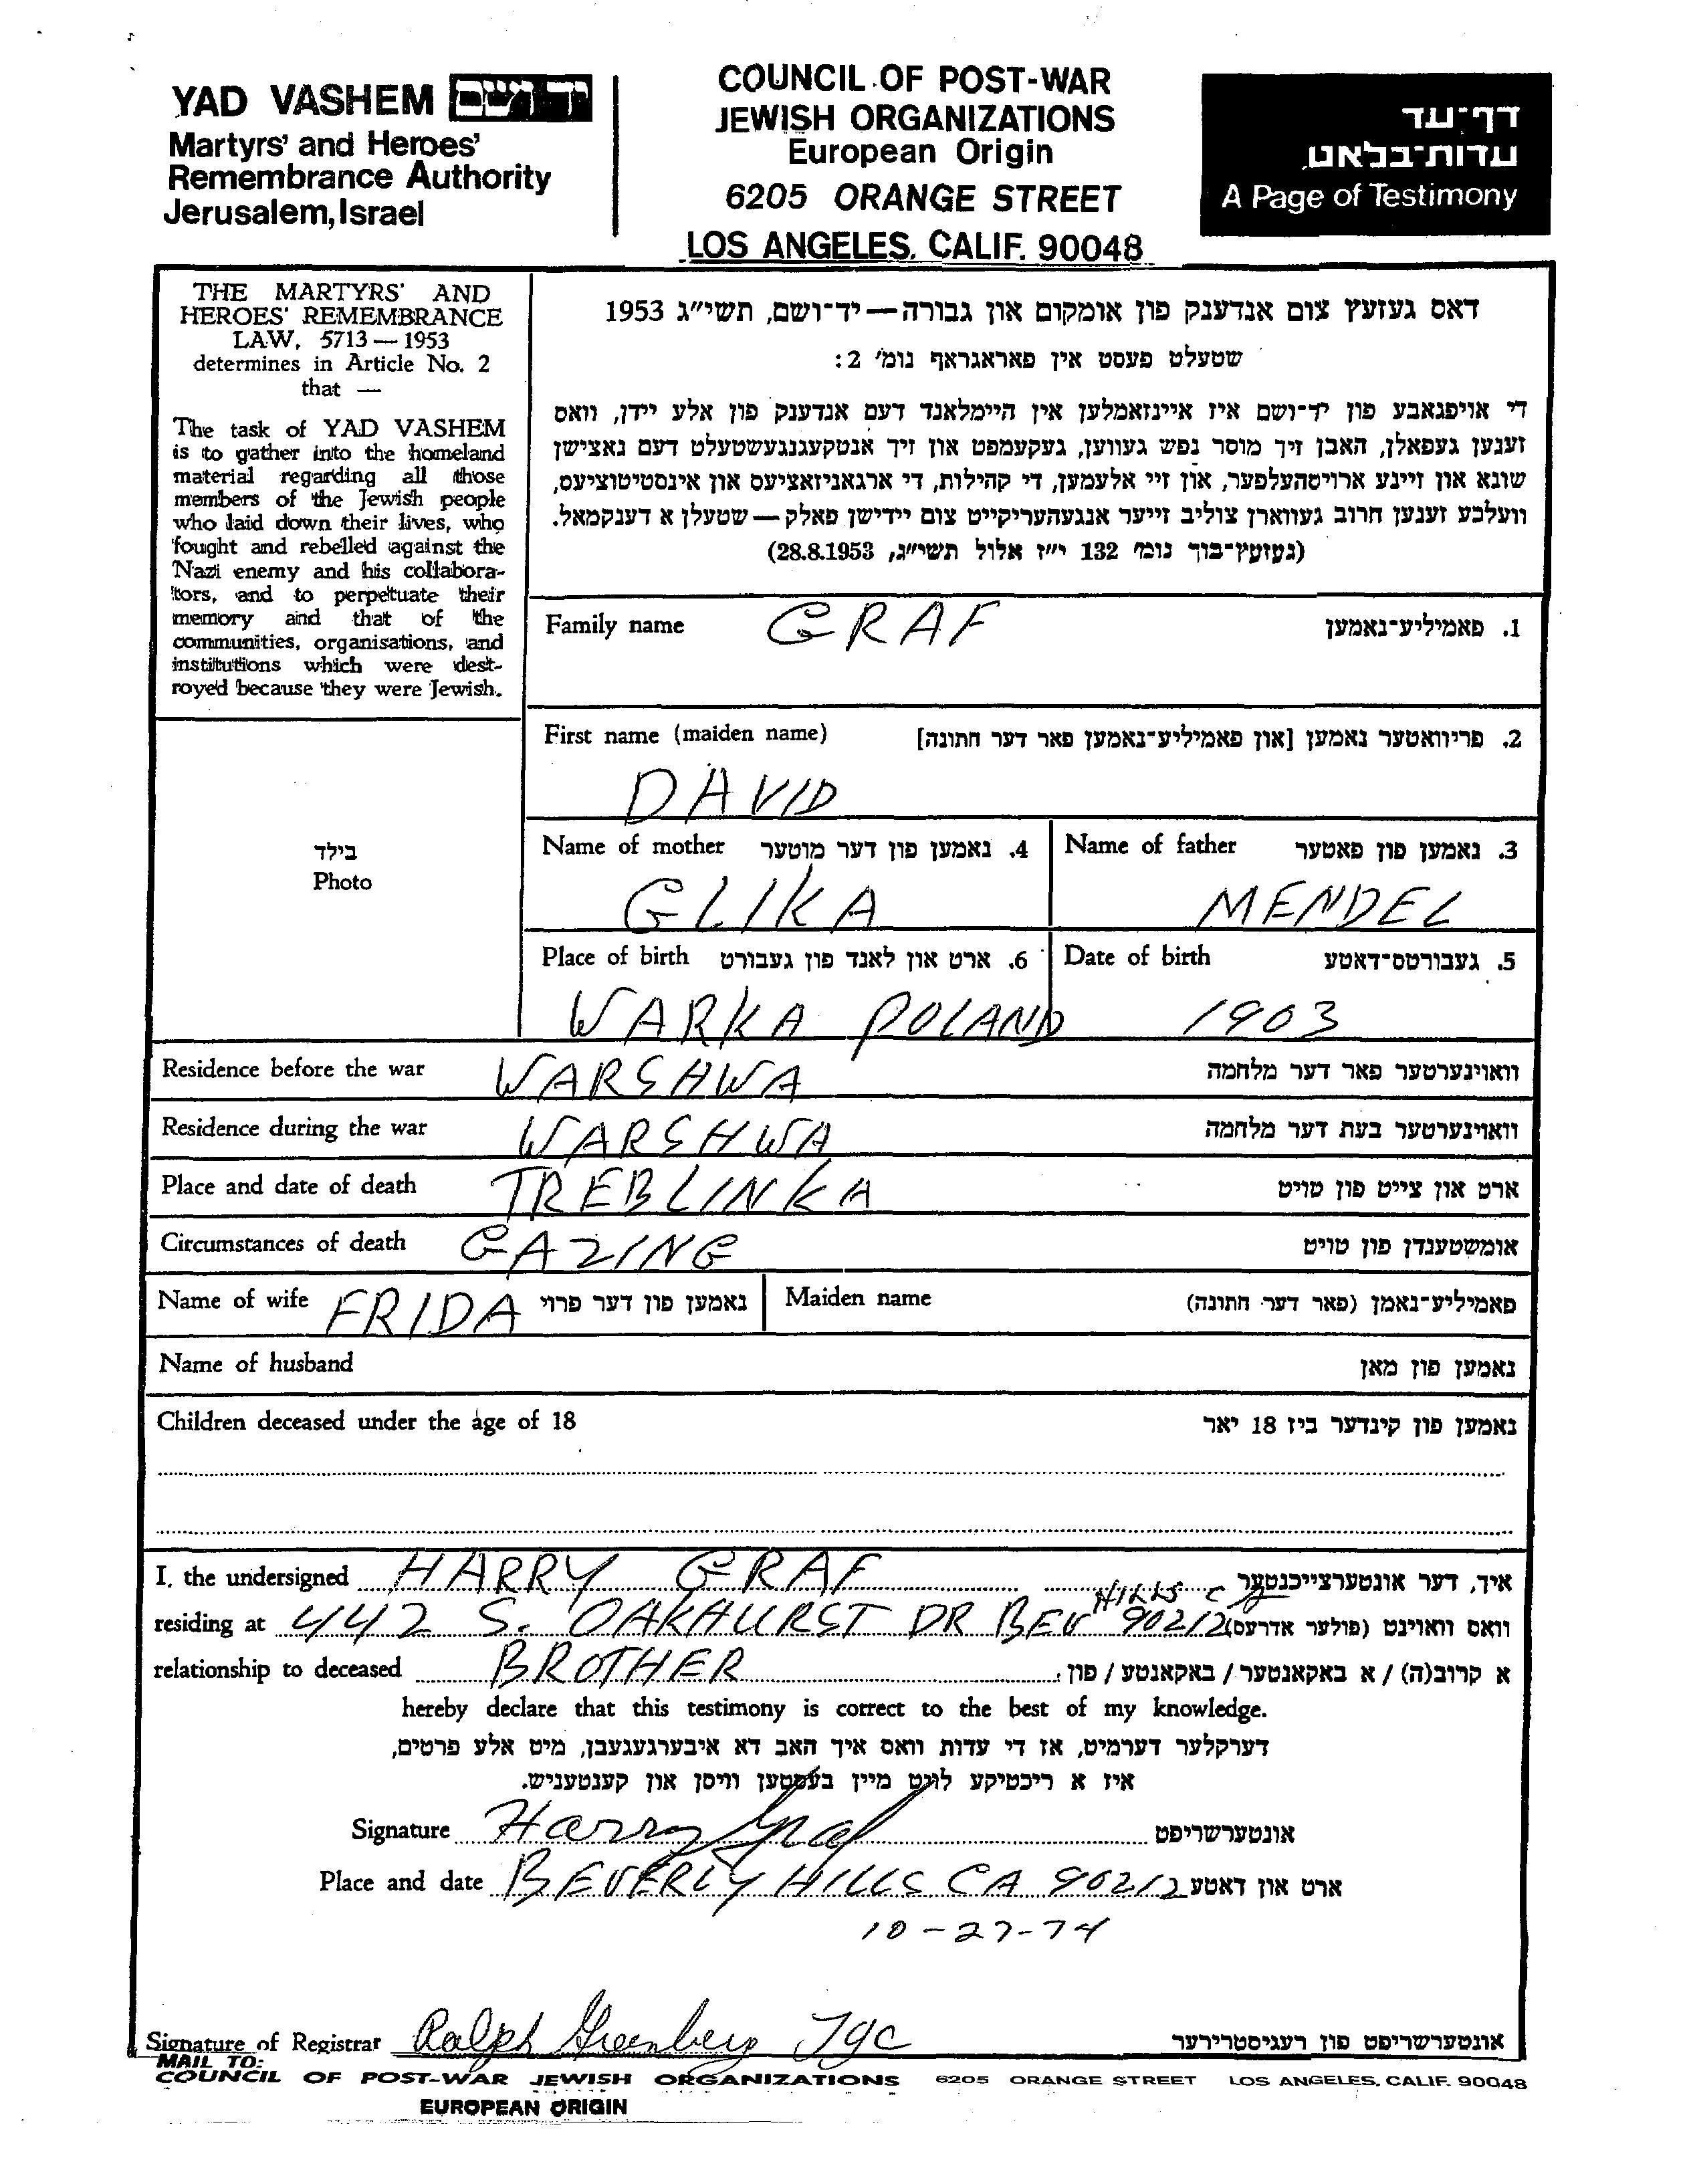 YAD VASHEM יד ושם
Martyrs' and Heroes'
Remembrance Authority
Jerusalem, Israel
COUNCIL OF POST-WAR
JEWISH ORGANIZATIONS
European Origin
6205 ORANGE STREET
LOS ANGELES, CALIF. 90048
דף-עד
עדות-בלאט
A Page of Testimony
THE MARTYRS' AND
HEROES' REMEMBRANCE
LAW, 5713 — 1953
determines in Article No. 2
that —
The task of YAD VASHEM
is to gather into the homeland
material regarding all those
members of the Jewish people
who laid down their lives, who
fought and rebelled against the
Nazi enemy and his collabora-
tors, and to perpetuate their
memory and that of the
communities, organisations, and
institutions which were dest-
royed because they were Jewish.
דאס געזעץ צום אנדענק פון אומקום און גבורה — יד-ושם, תשי"ג 1953
שטעלט פעסט אין פאראגראף נומ' 2:
די אויפגאבע פון יד-ושם איז איינזאמלען אין היימלאנד דעם אנדענק פון אלע יידן, וואס
זענען געפאלן, האבן זיך מוסר נפש געווען, געקעמפט און זיך אנטקעגנגעשטעלט דעם נאצישן
שונא און זיינע ארויסהעלפער, און זיי אלעמען, די קהילות, די ארגאניזאציעס און אינסטיטוציעס,
וועלכע זענען חרוב געווארן צוליב זייער אנגעהעריקייט צום יידישן פאלק — שטעלן א דענקמאל.
(געזעץ-בוך נומ' 132 י"ז אלול תשי"ג, 28.8.1953)
Family name GRAF 1. פאמיליע-נאמען
First name (maiden name) 2. פריוואטער נאמען [און פאמיליע-נאמען פאר דער חתונה]
DAVID
בילד
Photo
Name of mother 4. נאמען פון דער מוטער Name of father 3. נאמען פון פאטער
GLIKA MENDEL
Place of birth 6. ארט און לאנד פון געבורט Date of birth 5. געבורטס-דאטע
WARKA POLAND 1903
Residence before the war WARSHWA וואוינערטער פאר דער מלחמה
Residence during the war WARSHWA וואוינערטער בעת דער מלחמה
Place and date of death TREBLINKA ארט און צייט פון טויט
Circumstances of death GAZING אומשטענדן פון טויט
Name of wife FRIDA נאמען פון דער פרוי Maiden name פאמיליע-נאמן (פאר דער חתונה)
Name of husband נאמען פון מאן
Children deceased under the age of 18 נאמען פון קינדער ביז 18 יאר
I, the undersigned HARRY GRAF איך, דער אונטערצייכנטער
residing at 442 S. OAKHURST DR BEV HILLS 90212 וואס וואוינט (פולער אדרעס)
relationship to deceased BROTHER א קרוב(ה) / א באקאנטער / באקאנטע / פון:
hereby declare that this testimony is correct to the best of my knowledge.
דערקלער דערמיט, אז די עדות וואס איך האב דא איבערגעגעבן, מיט אלע פרטים,
איז א ריכטיקע לויט מיין בעסטען וויסן און קענטעניש.
Signature Harry Graf אונטערשריפט
Place and date BEVERLY HILLS CA 90212 ארט און דאטע
10-27-74
Signature of Registrar Ralph Greenberg אונטערשריפט פון רעגיסטרירער
MAIL TO:
COUNCIL OF POST-WAR JEWISH ORGANIZATIONS 6205 ORANGE STREET LOS ANGELES, CALIF. 90048
EUROPEAN ORIGIN